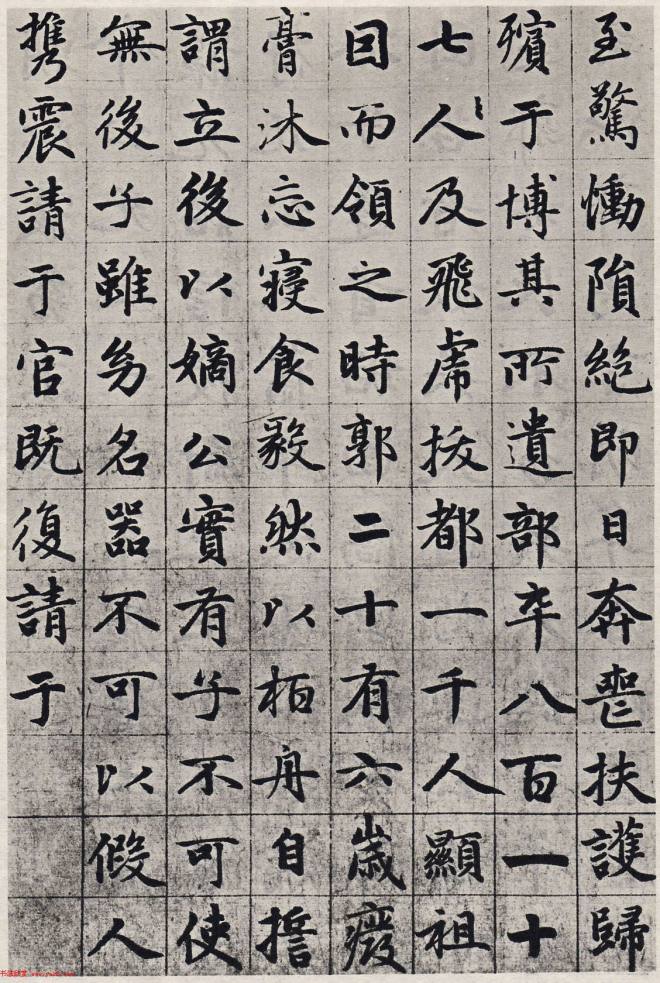 至驚慟隕絶即日奔喪扶護歸
殯于博其所遺部卒八百一十
七人及飛虎拔都一千人顯祖
因而領之時郭二十有六歲癈
膏沐忘寢食毅然以柏舟自誓
謂立後以嫡公實有子不可使
無後子雖幼名器不可以假人
携震請于官既復請于